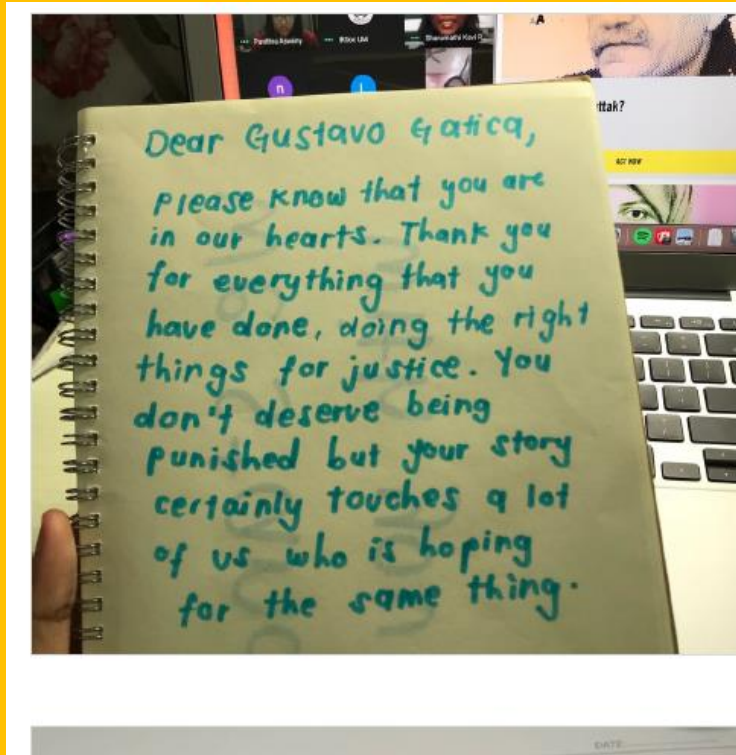 Panttina Aswainy
n
A
ttak?
ACT NOW
Dear Gustavo Gatica,
Please know that you are
in our hearts. Thank you
for everything that you
have done, doing the right
things for justice. You
don't deserve being
punished but your story
certainly touches a lot
of us who is hoping
for the same thing.
DATE